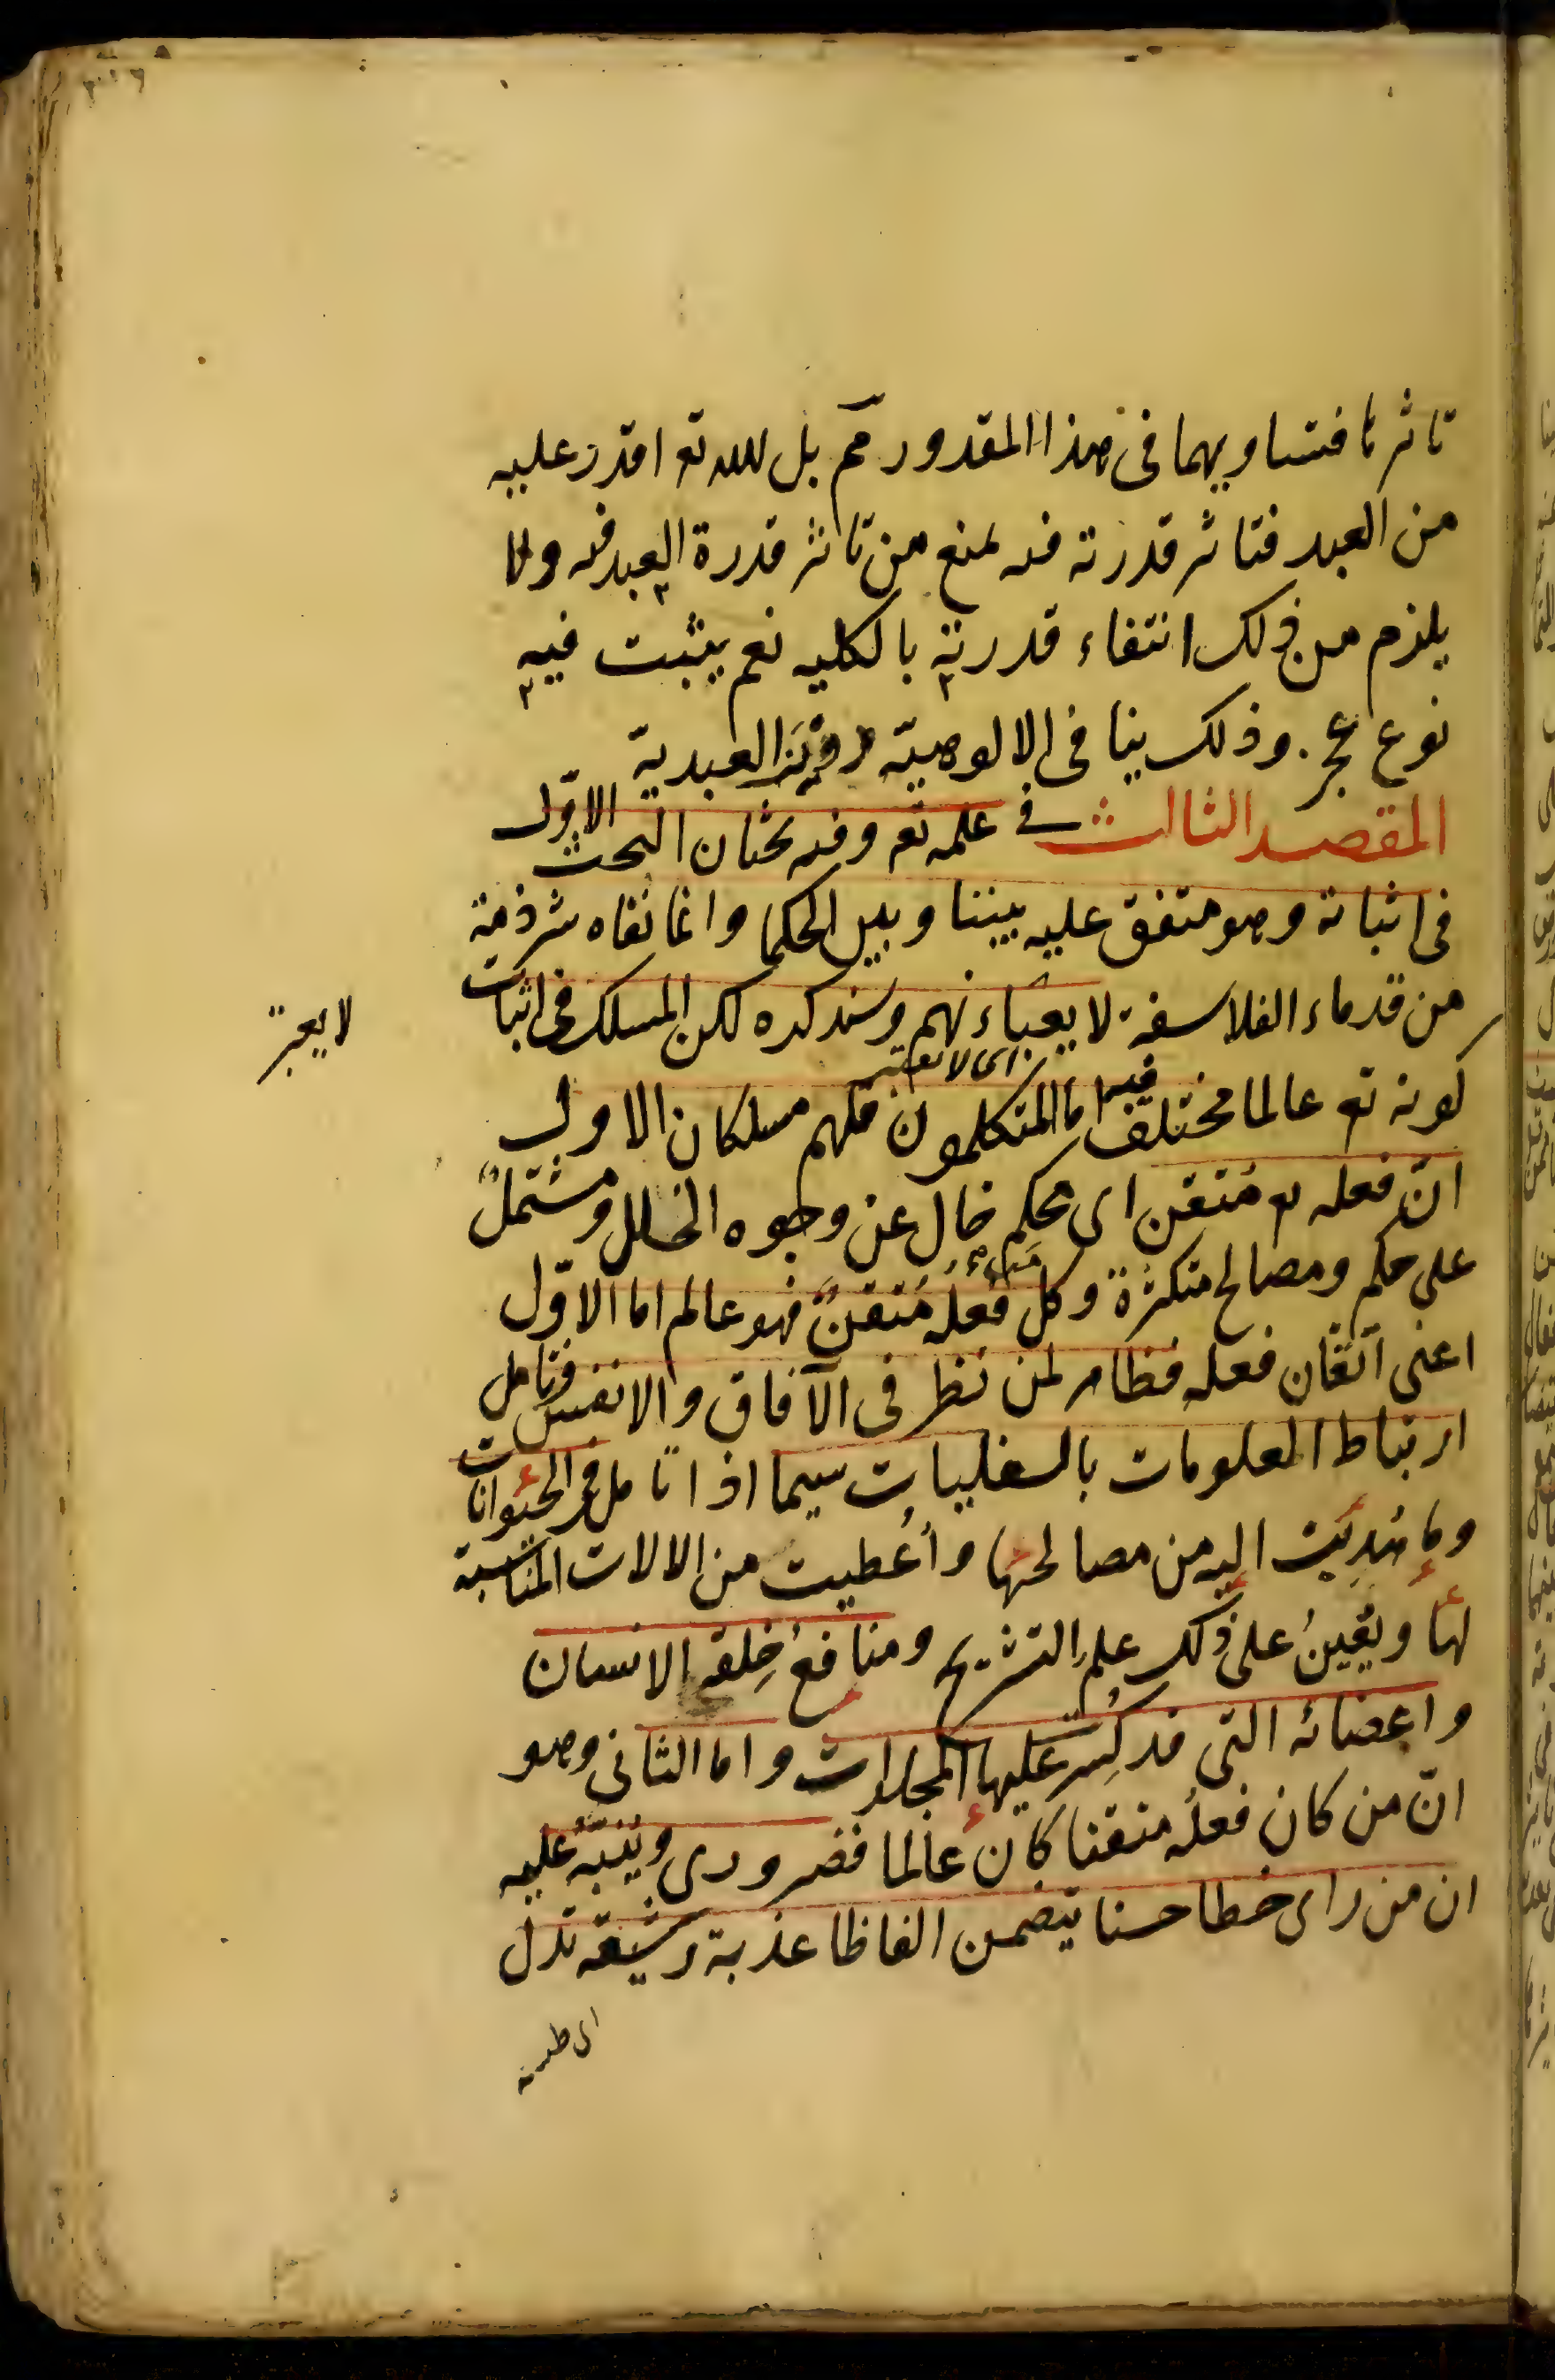 تاثرنا فتساويهما فى هذا المقدور مم بل لله تع اقدر عليه
من العبد فتاثر قدرته فيه يمنع من تاثر قدرة العبد فيه ولا
يلزم من ذلك انتفاء قدرته بالكليه نعم يثبت فيه
نوع عجز وذلك ينافى الالوهيّة دون العبديّة
المقصد الثالث فى علمه تع وفيه بحثان البحث الاوّل
فى اثباته وهو متفق عليه بيننا وبين الحكما وانما نفاه شرذمة
من قدماء الفلاسفة لا يعباء بهم وسنذكره لكن المسلك فى اثبات
اى لا يعتبر
لا يعتبر
كونه تع عالما مختلف فيه اما المتكلمون فلهم مسلكان الاول
انّ فعله تع مُتقن اى محكم خال عن وجوه الخلل ومشتملٌ
على حكم ومصالح متكثرة وكل من فعلُه مُتقنٌ فهو عالم اما الاوّل
اعنى اتقان فعله فظاهر لمن نظر فى الآفاق والانفس وتامل
ارتباط العلويات بالسفليات سيما اذا تامل فى الحيوانات
وما هُدِيَت اليه من مصالحها واُعُطيت من الالات المناسبة
لها ويُعِينُ على ذلك علم التشريح ومنافعُ خِلقة الانسان
واعضائه التى قد كُسِر عليها المجلدات واما الثانى وهو
انّ من كان فعلُه متقنا كان عالما فضرورى ويُنبّهُ عليه
ان من راى خطا حسنا يتضمن الفاظا عذبة رشيقة تدل